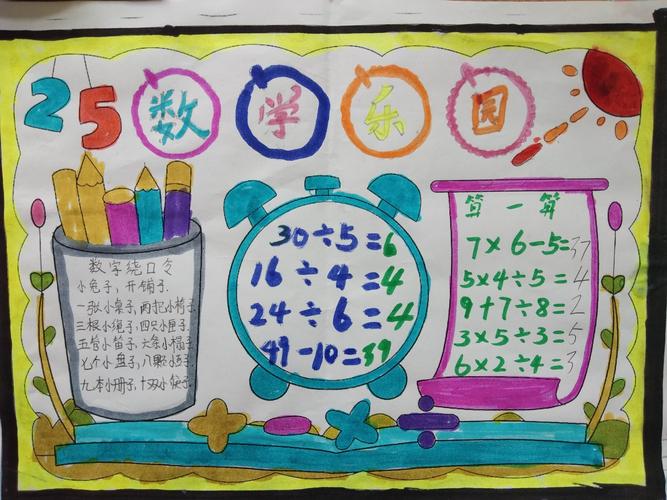 25 数学乐园
数字绕口令
小兔子,开铺子.
一张小桌子,两把小椅子
三根小绳子,四只小匣子.
五管小笛子,六条小棍子.
七个小盘子,八颗小豆子.
九本小册子,十双小筷子.
30÷5=6
16÷4=4
24÷6=4
49-10=39
算一算
7×6-5=37
5×4÷5=4
9+7÷8=2
3×5÷3=5
6×2÷4=3